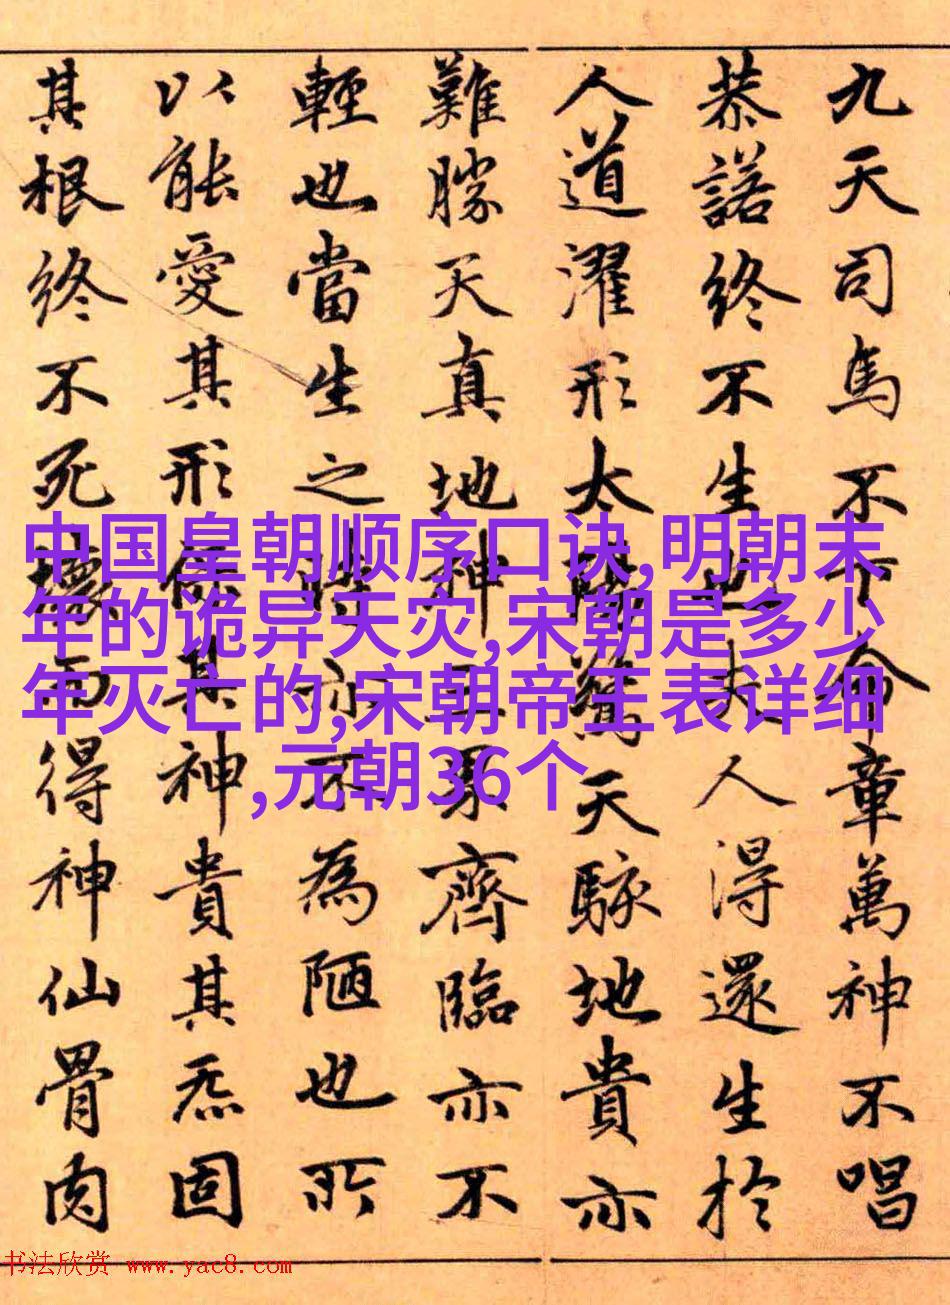 九天司馬不下命章萬神不唱
恭諾終不生也夫人得還生於
人道濯形太陽驚天駭地貴亦
難勝天真地神三界齊臨亦不
輕也當生之時亦不為陋也所
以能愛其形保其神貴其炁固
其根終不死壞而得神仙骨肉
中国皇朝顺序口诀,明朝末
年的诡异天灾,宋朝是多少
年灭亡的,宋朝帝王表详细
,元朝36个
书法欣赏 www.yac8.com